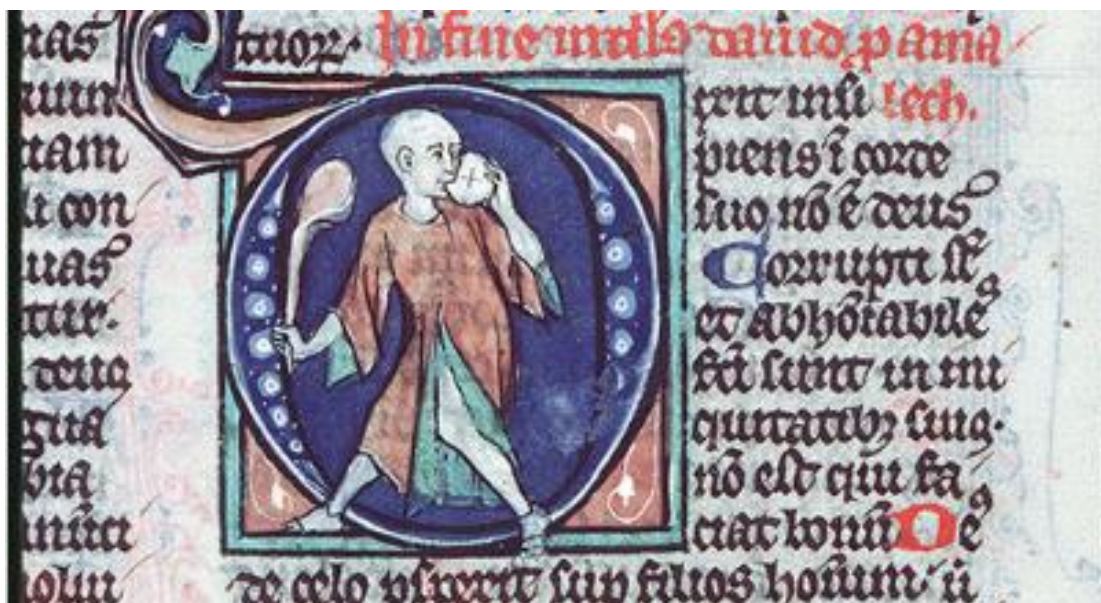 nas
uum
tam
li con
uas
tur.
gua
bia
tuoꝝ. In fine intells dauid. p ama
ixit insi lech.
piens ī corde
suo nō ē deus
Corrupti st̄
et abhoīabile
fcī sunt in ini
quitatibꝫ suis.
nō est qui fa
ciat bonū De9
de celo pspexit sup filios hoīum: ū